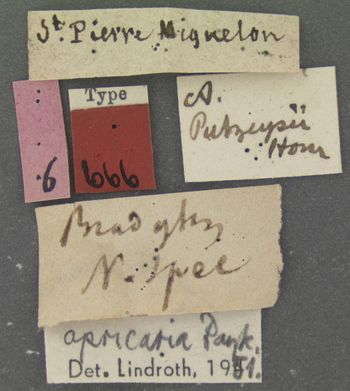 St. Pierre Miquelon
Type
6
666
A.
Putzeysii
Horn
N. Spec
apricaria Payk.
Det. Lindroth, 1951.